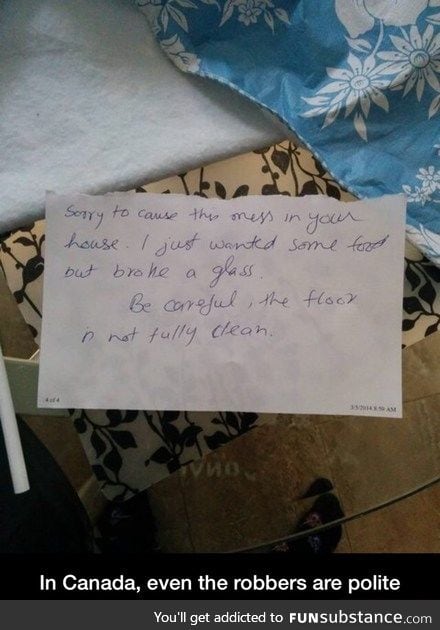 Sorry to cause this mess in your
house. I just wanted some food
but broke a glass.
Be careful, the floor
is not fully clean.
4 of 4
3/5/2014 8:59 AM
In Canada, even the robbers are polite
You'll get addicted to FUNsubstance.com